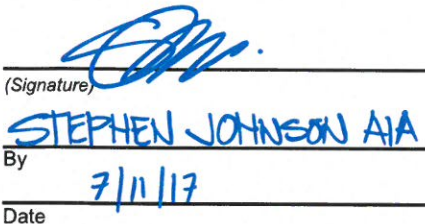 (Signature)
STEPHEN JOHNSON AIA
By
7/11/17
Date